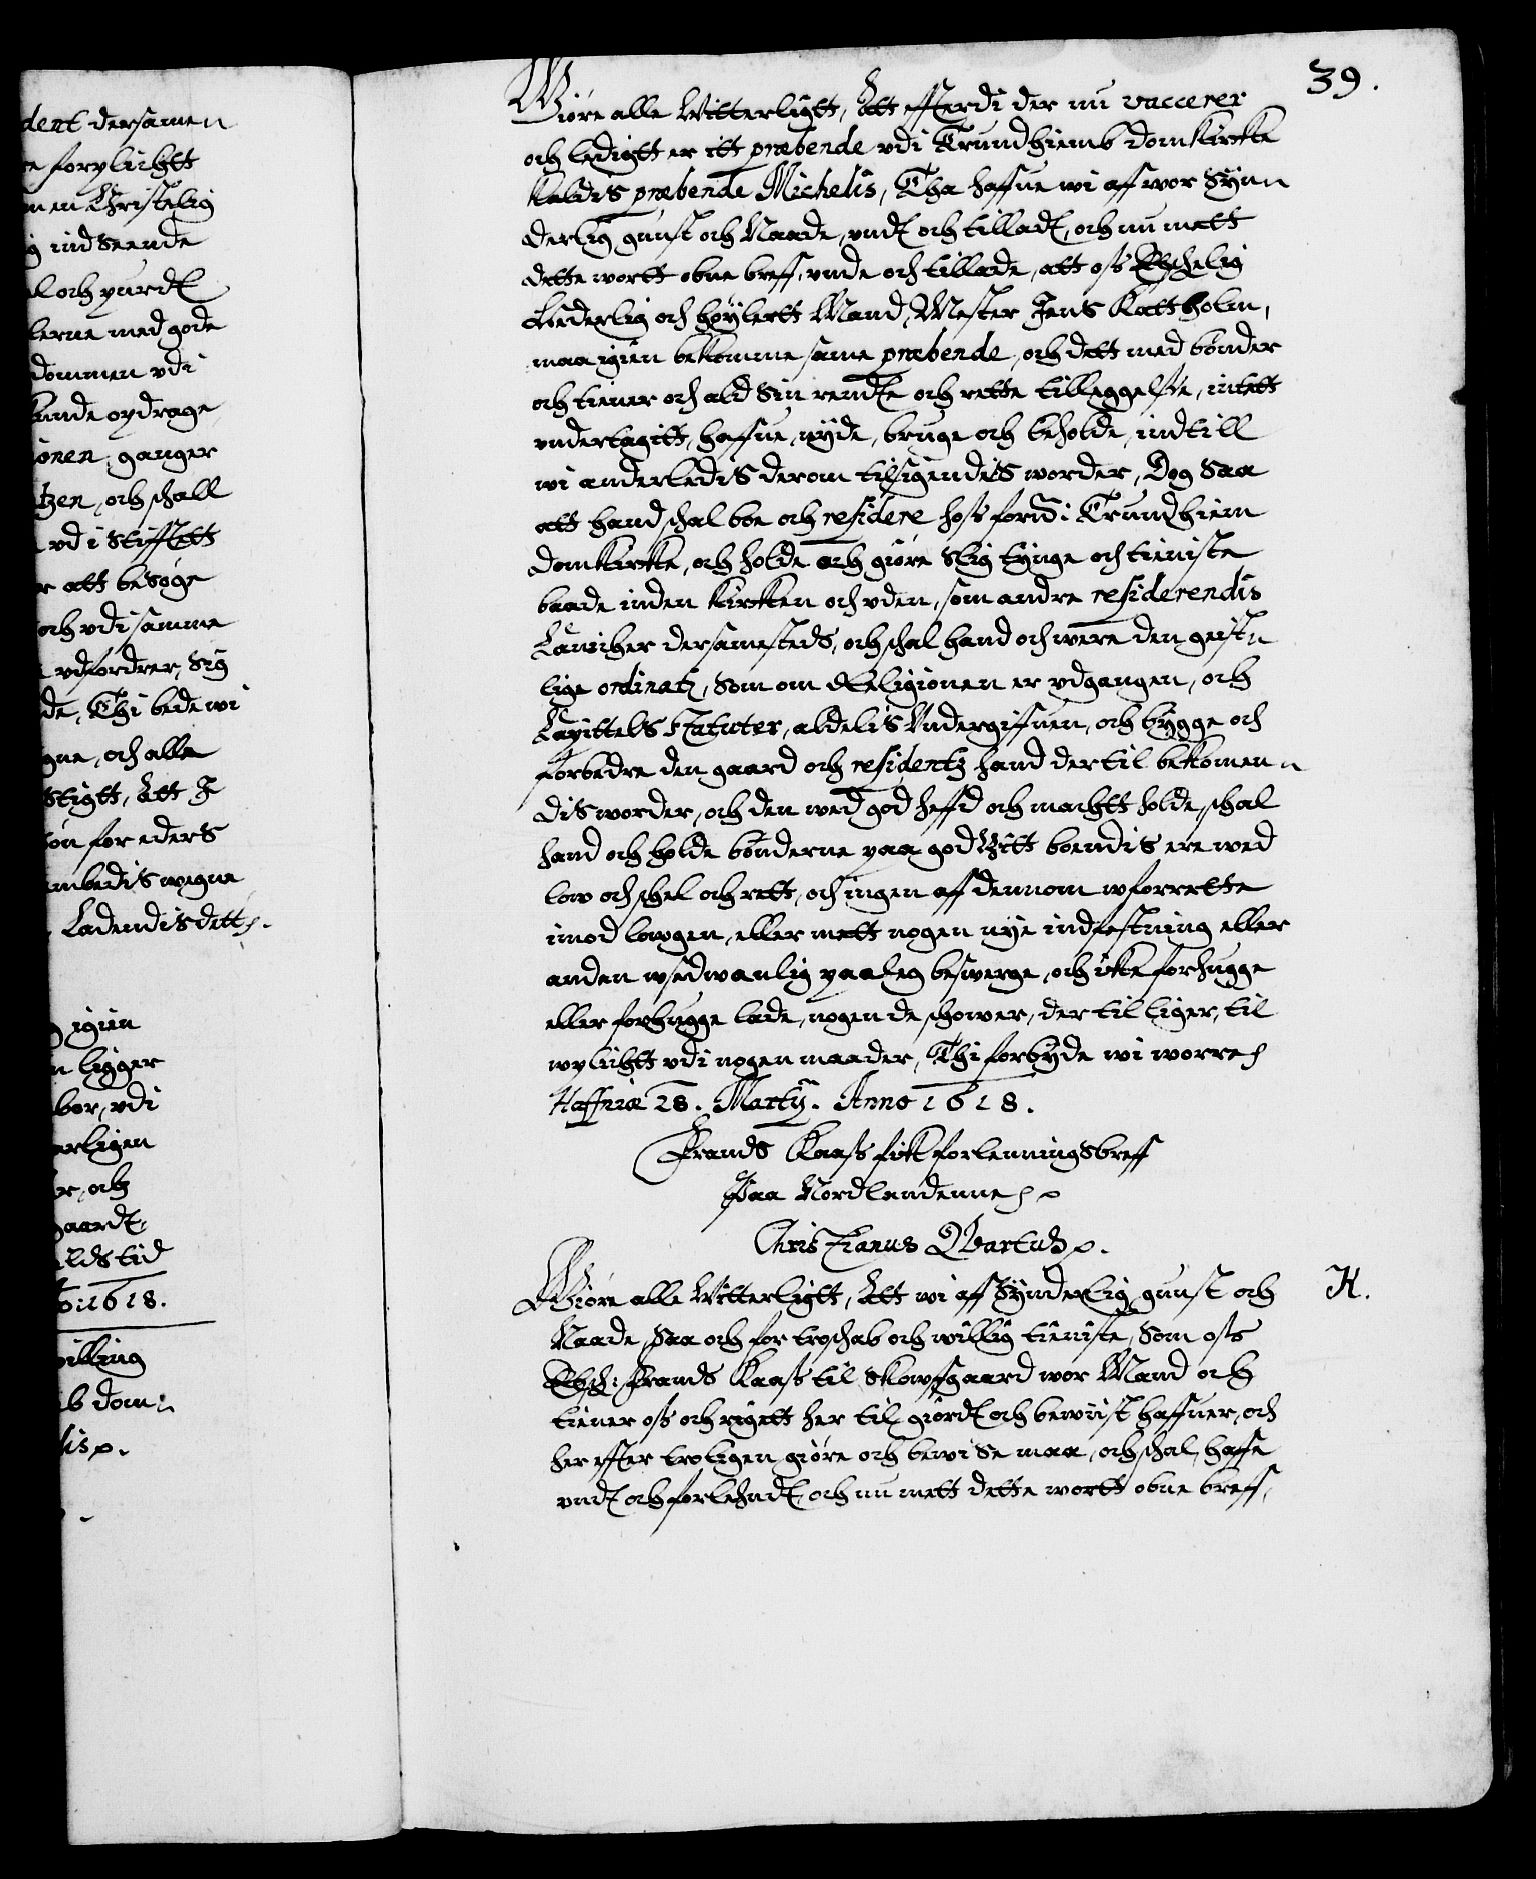 dent dersamen
re forplichtt
men Christelig
g indseende
el och purdt
lerne med gode
dommen vdi
kunde opdrage
ionen ganger
tzen, och schall
vdi Stifftett
r att besöge
och vdi samme
vdfordrer, Sig
de, Thi bede wi
gne, och alle
Stigtt, Att I
ön for eders
embedis wegne
Ladendis dett
igien
n ligger
bor, vdi
erligen
er, och
gaardt
ilds tid
1618.
willing
b dom:
lis
39.
Giöre alle Witterligtt, Att effterdi der nu vaccerer
och ledigtt er itt præbende vdi Trundhiemb domkircke
kaldis præbende Michelis, Tha haffue wi aff wor Synn
derlig gunst och Naade, vndt och tilladt, och nu mett
dette wortt obne breff, vnde och tillade, att oss Elschelig
Hederlig och höylertt Mand, Mester Jens Kattholm,
maa igien bekomme same præbende, och dett med bönder
och tiener och ald Sin rendte och rette tilleggelsse, intett
vndertagitt, haffue, nyde, bruge och beholde, indtill
wi anderledis derom tilsigendis worder, Dog Saa
att hand schal boe och residere hoss forn. i Trundhiem
domkircke, och holde och giöre Slig tynge och tieniste
baade inden kircken och vden, som andre residerendis
Canicher dersamesteds, och schal hand och were den geist
lige ordinatz, Som om Religionen er vdgangen, och
Capittels Statuter, aldelis Vndergiffuen, och bygge och
forbedre den gaard och residentz hand der til bekomen
dis worder, och den wed god heffd och machtt holde, schal
hand och holde bönderne paa god Vitt boendis ere wed
low och schel och rett, och ingen aff dennom wforrette
imod lowgen, eller mett nogen nye indfestning eller
anden wsedwanlig paaleg beswerge, och icke forhugge
eller forhugge lade, nogen de schower, der til liger, til
wplichtt vdi nogen maader, Thi forbyde wi worre
Haffniæ 28. Martij. Anno 1618.
Frands Kaass fick forlenningsbreff
Paa Nordlendenne
Christianus Qvartus
Giöre alle Vitterligtt, Att wi aff Synderlig gunst och
H.
Naade, Saa och for troschab och willig tieniste, Som oss
Elsch: Frands Kaass til Skowssgaard wor Mand och
tiener oss och rigett her til giordt och bewiist haffuer, och
her effter troligen giöre och bewise maa, och schal, haffe
vndt och forlehndt, och nu mett dette wortt obne breff,